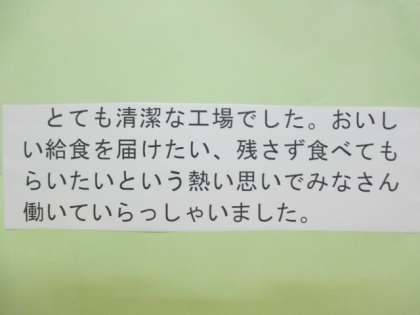 とても清潔な工場でした。おいし
い給食を届けたい、残さず食べても
らいたいという熱い思いでみなさん
働いていらっしゃいました。